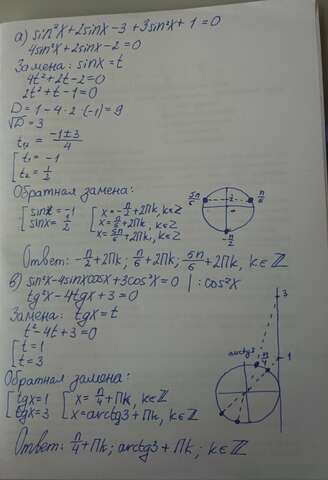 а) sin²x+2sinx-3+3sin²x+1=0
4sin²x+2sinx-2=0
Замена: sinx=t
4t²+2t-2=0
2t²+t-1=0
D=1-4·2·(-1)=9
√D=3
t₁,₂=(-1±3)/4
[t₁=-1
[t₂=1/2
Обратная замена:
[sinx=-1 [x=-π/2+2πk, k∈Z
[sinx=1/2 [x=π/6+2πk, k∈Z
[x=5π/6+2πk, k∈Z
5π/6 1/2 π/6
-π/2
Ответ: -π/2+2πk; π/6+2πk; 5π/6+2πk, k∈Z
в) sin²x-4sinxcosx+3cos²x=0 | :cos²x
tg²x-4tgx+3=0
Замена: tgx=t
t²-4t+3=0
[t=1
[t=3
Обратная замена:
[tgx=1 [x=π/4+πk, k∈Z
[tgx=3 [x=arctg3+πk, k∈Z
3
arctg3 π/4 1
Ответ: π/4+πk; arctg3+πk; k∈Z